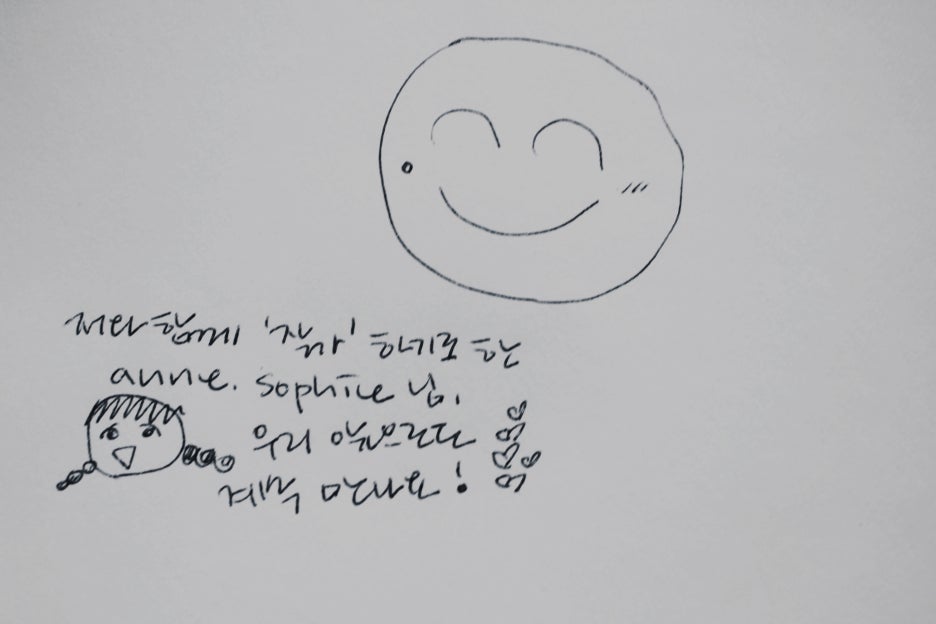 저와 함께 '잠깐' 하기로 한
anne. sophie 님.
우리 앞으로도
계속 만나요!